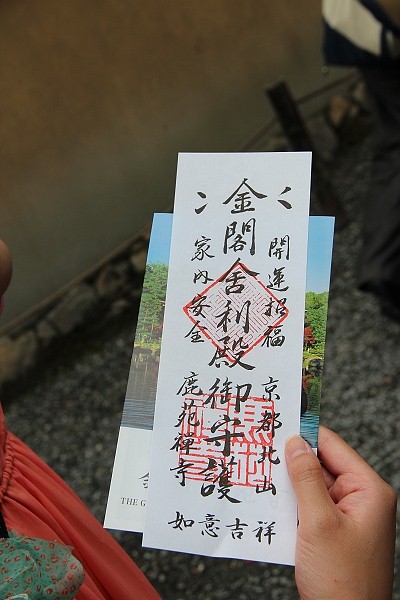 金閣舎利殿御守護
開運招福
家内安全
京都北山
鹿苑禅寺
如意吉祥
THE G